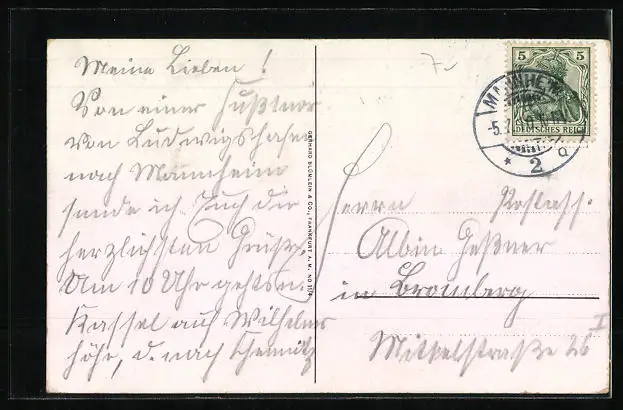 Meine Lieben!
Von einer Fußtour
von Ludwigshafen
nach Mannheim
sende ich Euch die
herzlichsten Grüße.
Um 10 Uhr geht's n.
Kassel auf Wilhelms
höhe, d. nach Chemnitz
GERHARD BLÜMLEIN & CO., FRANKFURT A. M. NO
7-
5 5
DEUTSCHES REICH
MANNHEIM
* 2
Herrn Postass.
Albin Geßner
in Bromberg
Mittelstraße 26 I